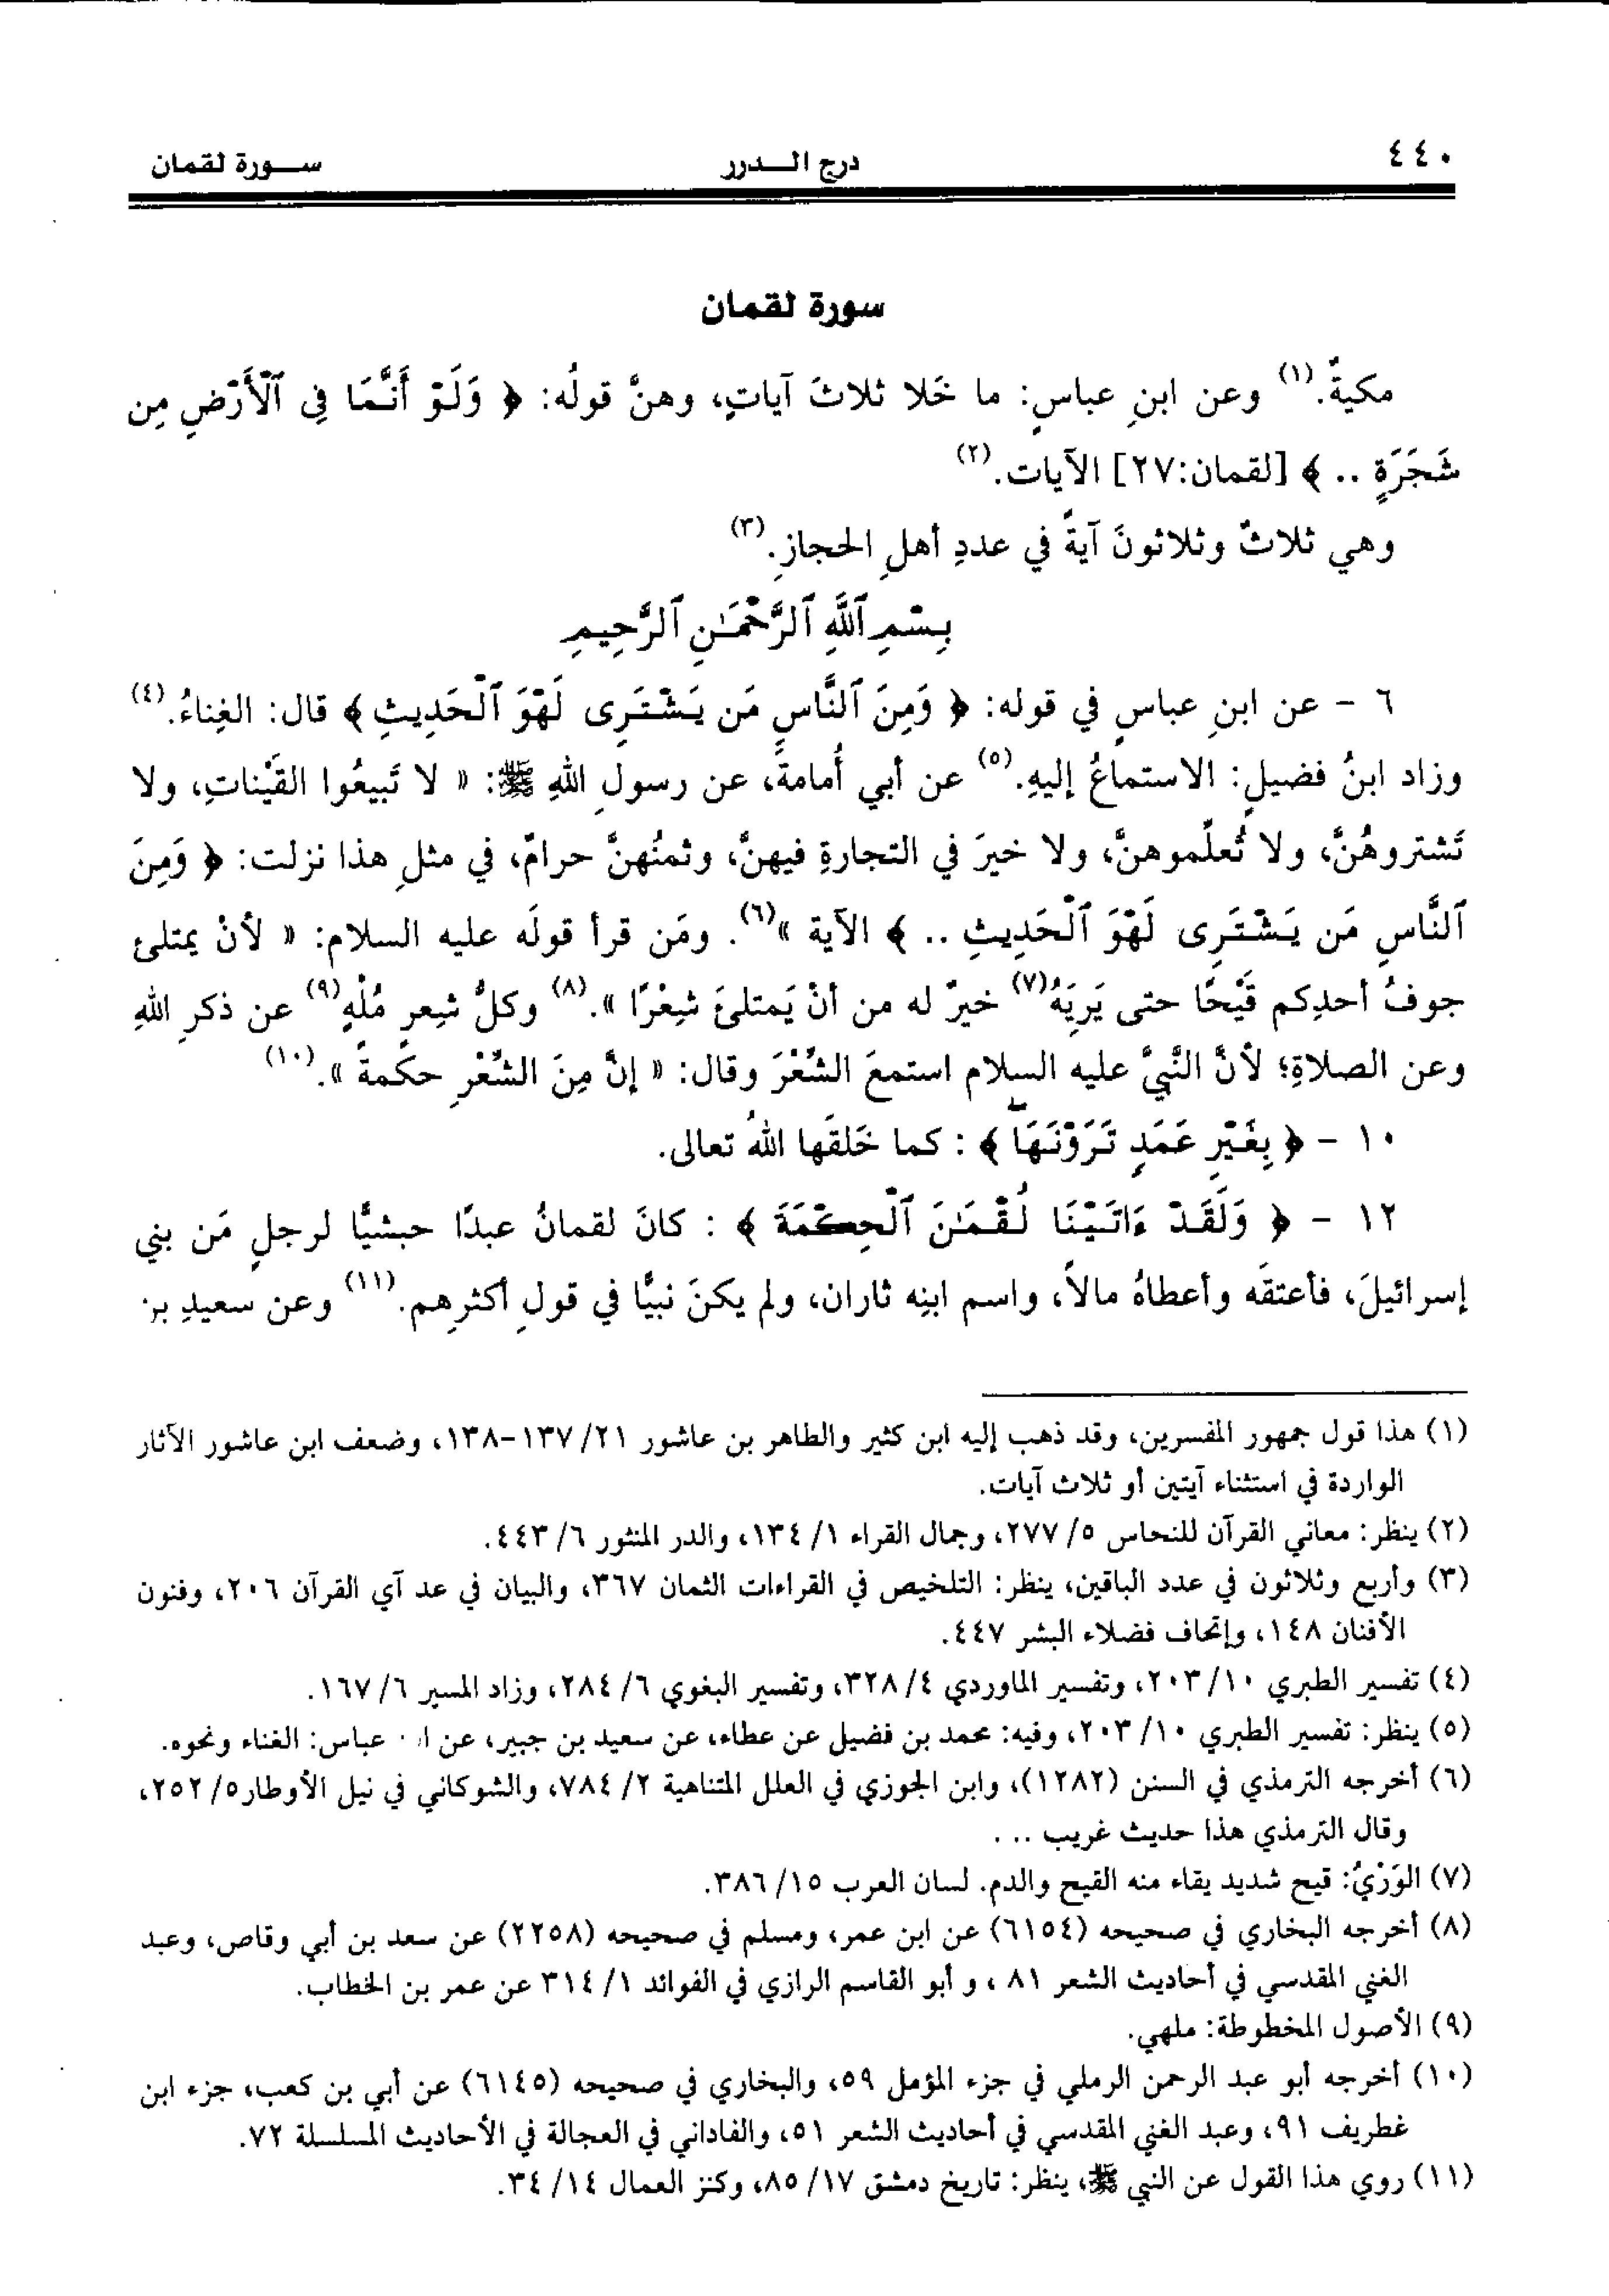 ٤٤٠ درج الـــدرر ســـورة لقمان
سورة لقمان
مكيةٌ.(١) وعن ابنِ عباسٍ: ما خَلا ثلاثَ آياتٍ، وهنَّ قولُه: ﴿ وَلَوْ أَنَّمَا فِى ٱلْأَرْضِ مِن
شَجَرَةٍ .. ﴾ [لقمان:٢٧] الآيات.(٢)
وهي ثلاثٌ وثلاثونَ آيةً في عددِ أهلِ الحجازِ.(٣)
بِسْمِ ٱللَّهِ ٱلرَّحْمَـٰنِ ٱلرَّحِيمِ
٦ - عن ابنِ عباسٍ في قوله: ﴿ وَمِنَ ٱلنَّاسِ مَن يَشْتَرِى لَهْوَ ٱلْحَدِيثِ ﴾ قال: الغِناءُ.(٤)
وزاد ابنُ فضيلٍ: الاستماعُ إليهِ.(٥) عن أبي أُمامةَ، عن رسولِ اللهِ ﷺ: « لا تَبيعُوا القَيْناتِ، ولا
تَشتروهُنَّ، ولا تُعلِّموهنَّ، ولا خيرَ في التجارةِ فيهنَّ، وثمنُهنَّ حرامٌ، في مثلِ هذا نزلت: ﴿ وَمِنَ
ٱلنَّاسِ مَن يَشْتَرِى لَهْوَ ٱلْحَدِيثِ .. ﴾ الآية »(٦). ومَن قرأ قولَه عليه السلام: « لأنْ يمتلئ
جوفُ أحدِكم قَيْحًا حتى يَرِيَهُ(٧) خيرٌ له من أنْ يَمتلئَ شِعْرًا ».(٨) وكلُّ شِعرٍ مُلْهٍ(٩) عن ذكرِ اللهِ
وعن الصلاةِ؛ لأنَّ النَّبيَّ عليه السلام استمعَ الشِّعْرَ وقال: « إنَّ مِنَ الشِّعْرِ حكمةً ».(١٠)
١٠ - ﴿ بِغَيْرِ عَمَدٍ تَرَوْنَهَا ﴾ : كما خَلقَها اللهُ تعالى.
١٢ - ﴿ وَلَقَدْ ءَاتَيْنَا لُقْمَـٰنَ ٱلْحِكْمَةَ ﴾ : كانَ لقمانُ عبدًا حبشيًّا لرجلٍ مَن بني
إسرائيلَ، فأعتقَه وأعطاهُ مالاً، واسم ابنِه ثاران، ولم يكنَ نبيًّا في قولِ أكثرِهم.(١١) وعن سعيدِ بن
(١) هذا قول جمهور المفسرين، وقد ذهب إليه ابن كثير والطاهر بن عاشور ٢١/ ١٣٧-١٣٨، وضعف ابن عاشور الآثار
الواردة في استثناء آيتين أو ثلاث آيات.
(٢) ينظر: معاني القرآن للنحاس ٥/ ٢٧٧، وجمال القراء ١/ ١٣٤، والدر المنثور ٦/ ٤٤٣.
(٣) وأربع وثلاثون في عدد الباقين، ينظر: التلخيص في القراءات الثمان ٣٦٧، والبيان في عد آي القرآن ٢٠٦، وفنون
الأفنان ١٤٨، وإتحاف فضلاء البشر ٤٤٧.
(٤) تفسير الطبري ١٠/ ٢٠٣، وتفسير الماوردي ٤/ ٣٢٨، وتفسير البغوي ٦/ ٢٨٤، وزاد المسير ٦/ ١٦٧.
(٥) ينظر: تفسير الطبري ١٠/ ٢٠٣، وفيه: محمد بن فضيل عن عطاء، عن سعيد بن جبير، عن عباس: الغناء ونحوه.
(٦) أخرجه الترمذي في السنن (١٢٨٢)، وابن الجوزي في العلل المتناهية ٢/ ٧٨٤، والشوكاني في نيل الأوطار٥/ ٢٥٢،
وقال الترمذي هذا حديث غريب .. .
(٧) الوَرْيُ: قيح شديد يقاء منه القيح والدم. لسان العرب ١٥/ ٣٨٦.
(٨) أخرجه البخاري في صحيحه (٦١٥٤) عن ابن عمر، ومسلم في صحيحه (٢٢٥٨) عن سعد بن أبي وقاص، وعبد
الغني المقدسي في أحاديث الشعر ٨١ ، و أبو القاسم الرازي في الفوائد ١/ ٣١٤ عن عمر بن الخطاب.
(٩) الأصول المخطوطة: ملهي.
(١٠) أخرجه أبو عبد الرحمن الرملي في جزء المؤمل ٥٩، والبخاري في صحيحه (٦١٤٥) عن أبي بن كعب، جزء ابن
غطريف ٩١، وعبد الغني المقدسي في أحاديث الشعر ٥١، والفاداني في العجالة في الأحاديث المسلسلة ٧٢.
(١١) روي هذا القول عن النبي ﷺ، ينظر: تاريخ دمشق ١٧/ ٨٥، وكنز العمال ١٤/ ٣٤.